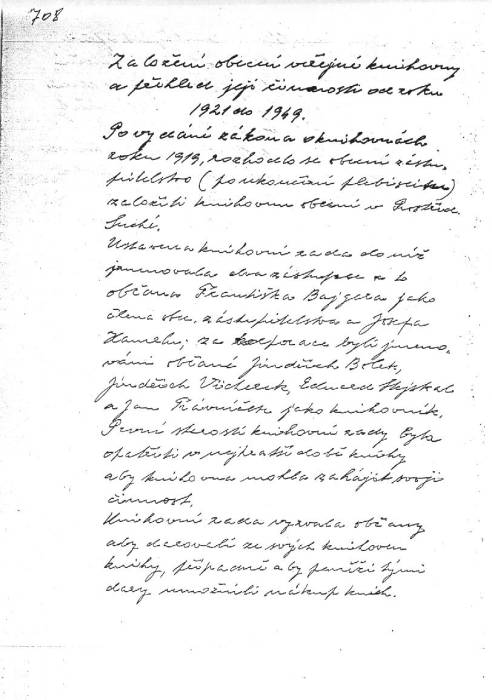 708
Založení obecní veřejné knihovny
a přehled její činnosti od roku
1921 do 1949.
Po vydání zákona o knihovnách
roku 1919, rozhodlo se obecní zastu-
pitelstvo (po ukončení plebiscitu)
založiti knihovnu obecní v Prostřed.
Suché.
Ustavena knihovní rada do níž
jmenovala dva zástupce a to
občana Františka Bajgera jako
člena obec. zástupitelstva a Josefa
Hamelu; za korporace byli jmeno-
váni občané Jindřich Bolek,
Jindřich Eduard Hejskal
a Jan Trávníček jako knihovník.
První starostí knihovní rady bylo
opatřiti v nejkratší době knihy
aby knihovna mohla zahájit svoji
činnost.
Knihovní rada vyzvala občany
aby darovali ze svých knihoven
knihy, případně aby peněžitými
dary umožnili nákup knih.